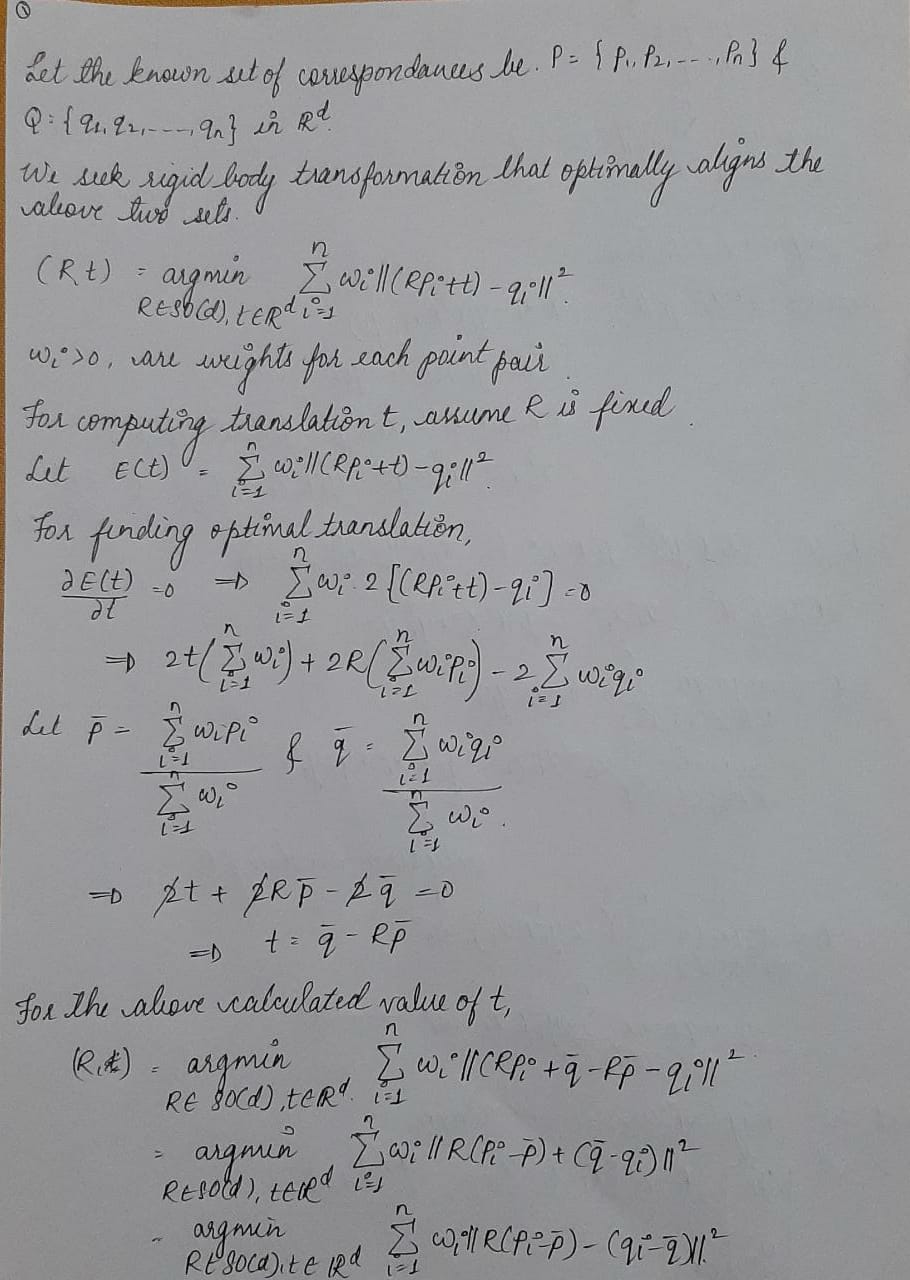 ①
Let the known set of correspondances be. P = { p₁, p₂, ---, pₙ } &
Q = { q₁, q₂, ---, qₙ } in Rᵈ.
We seek rigid body transformation that optimally aligns the
above two sets.
(R t) = argmin_{R∈SO(d), t∈Rᵈ} Σ_{i=1}^{n} wᵢ ||(Rpᵢ + t) - qᵢ||².
wᵢ > 0, are weights for each point pair.
For computing translation t, assume R is fixed.
Let E(t) = Σ_{i=1}^{n} wᵢ ||(Rpᵢ + t) - qᵢ||².
For finding optimal translation,
∂E(t)/∂t = 0 ⇒ Σ_{i=1}^{n} wᵢ · 2 [(Rpᵢ + t) - qᵢ] = 0
⇒ 2t(Σ_{i=1}^{n} wᵢ) + 2R(Σ_{i=1}^{n} wᵢpᵢ) - 2 Σ_{i=1}^{n} wᵢqᵢ
Let p̄ = Σ_{i=1}^{n} wᵢpᵢ / Σ_{i=1}^{n} wᵢ & q̄ = Σ_{i=1}^{n} wᵢqᵢ / Σ_{i=1}^{n} wᵢ.
⇒ 2t + 2Rp̄ - 2q̄ = 0
⇒ t = q̄ - Rp̄
For the above calculated value of t,
(R, t) = argmin_{R∈SO(d), t∈Rᵈ} Σ_{i=1}^{n} wᵢ ||(Rpᵢ + q̄ - Rp̄ - qᵢ||²
= argmin_{R∈SO(d), t∈Rᵈ} Σ_{i=1}^{n} wᵢ || R(pᵢ - p̄) + (q̄ - qᵢ) ||²
= argmin_{R∈SO(d), t∈Rᵈ} Σ_{i=1}^{n} wᵢ || R(pᵢ - p̄) - (qᵢ - q̄) ||².